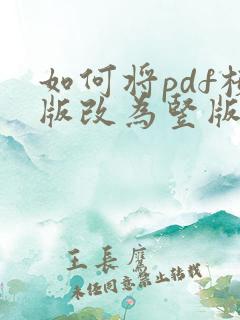 如何将pdf横
版改为竖版
王长鹰
未经同意禁止转载